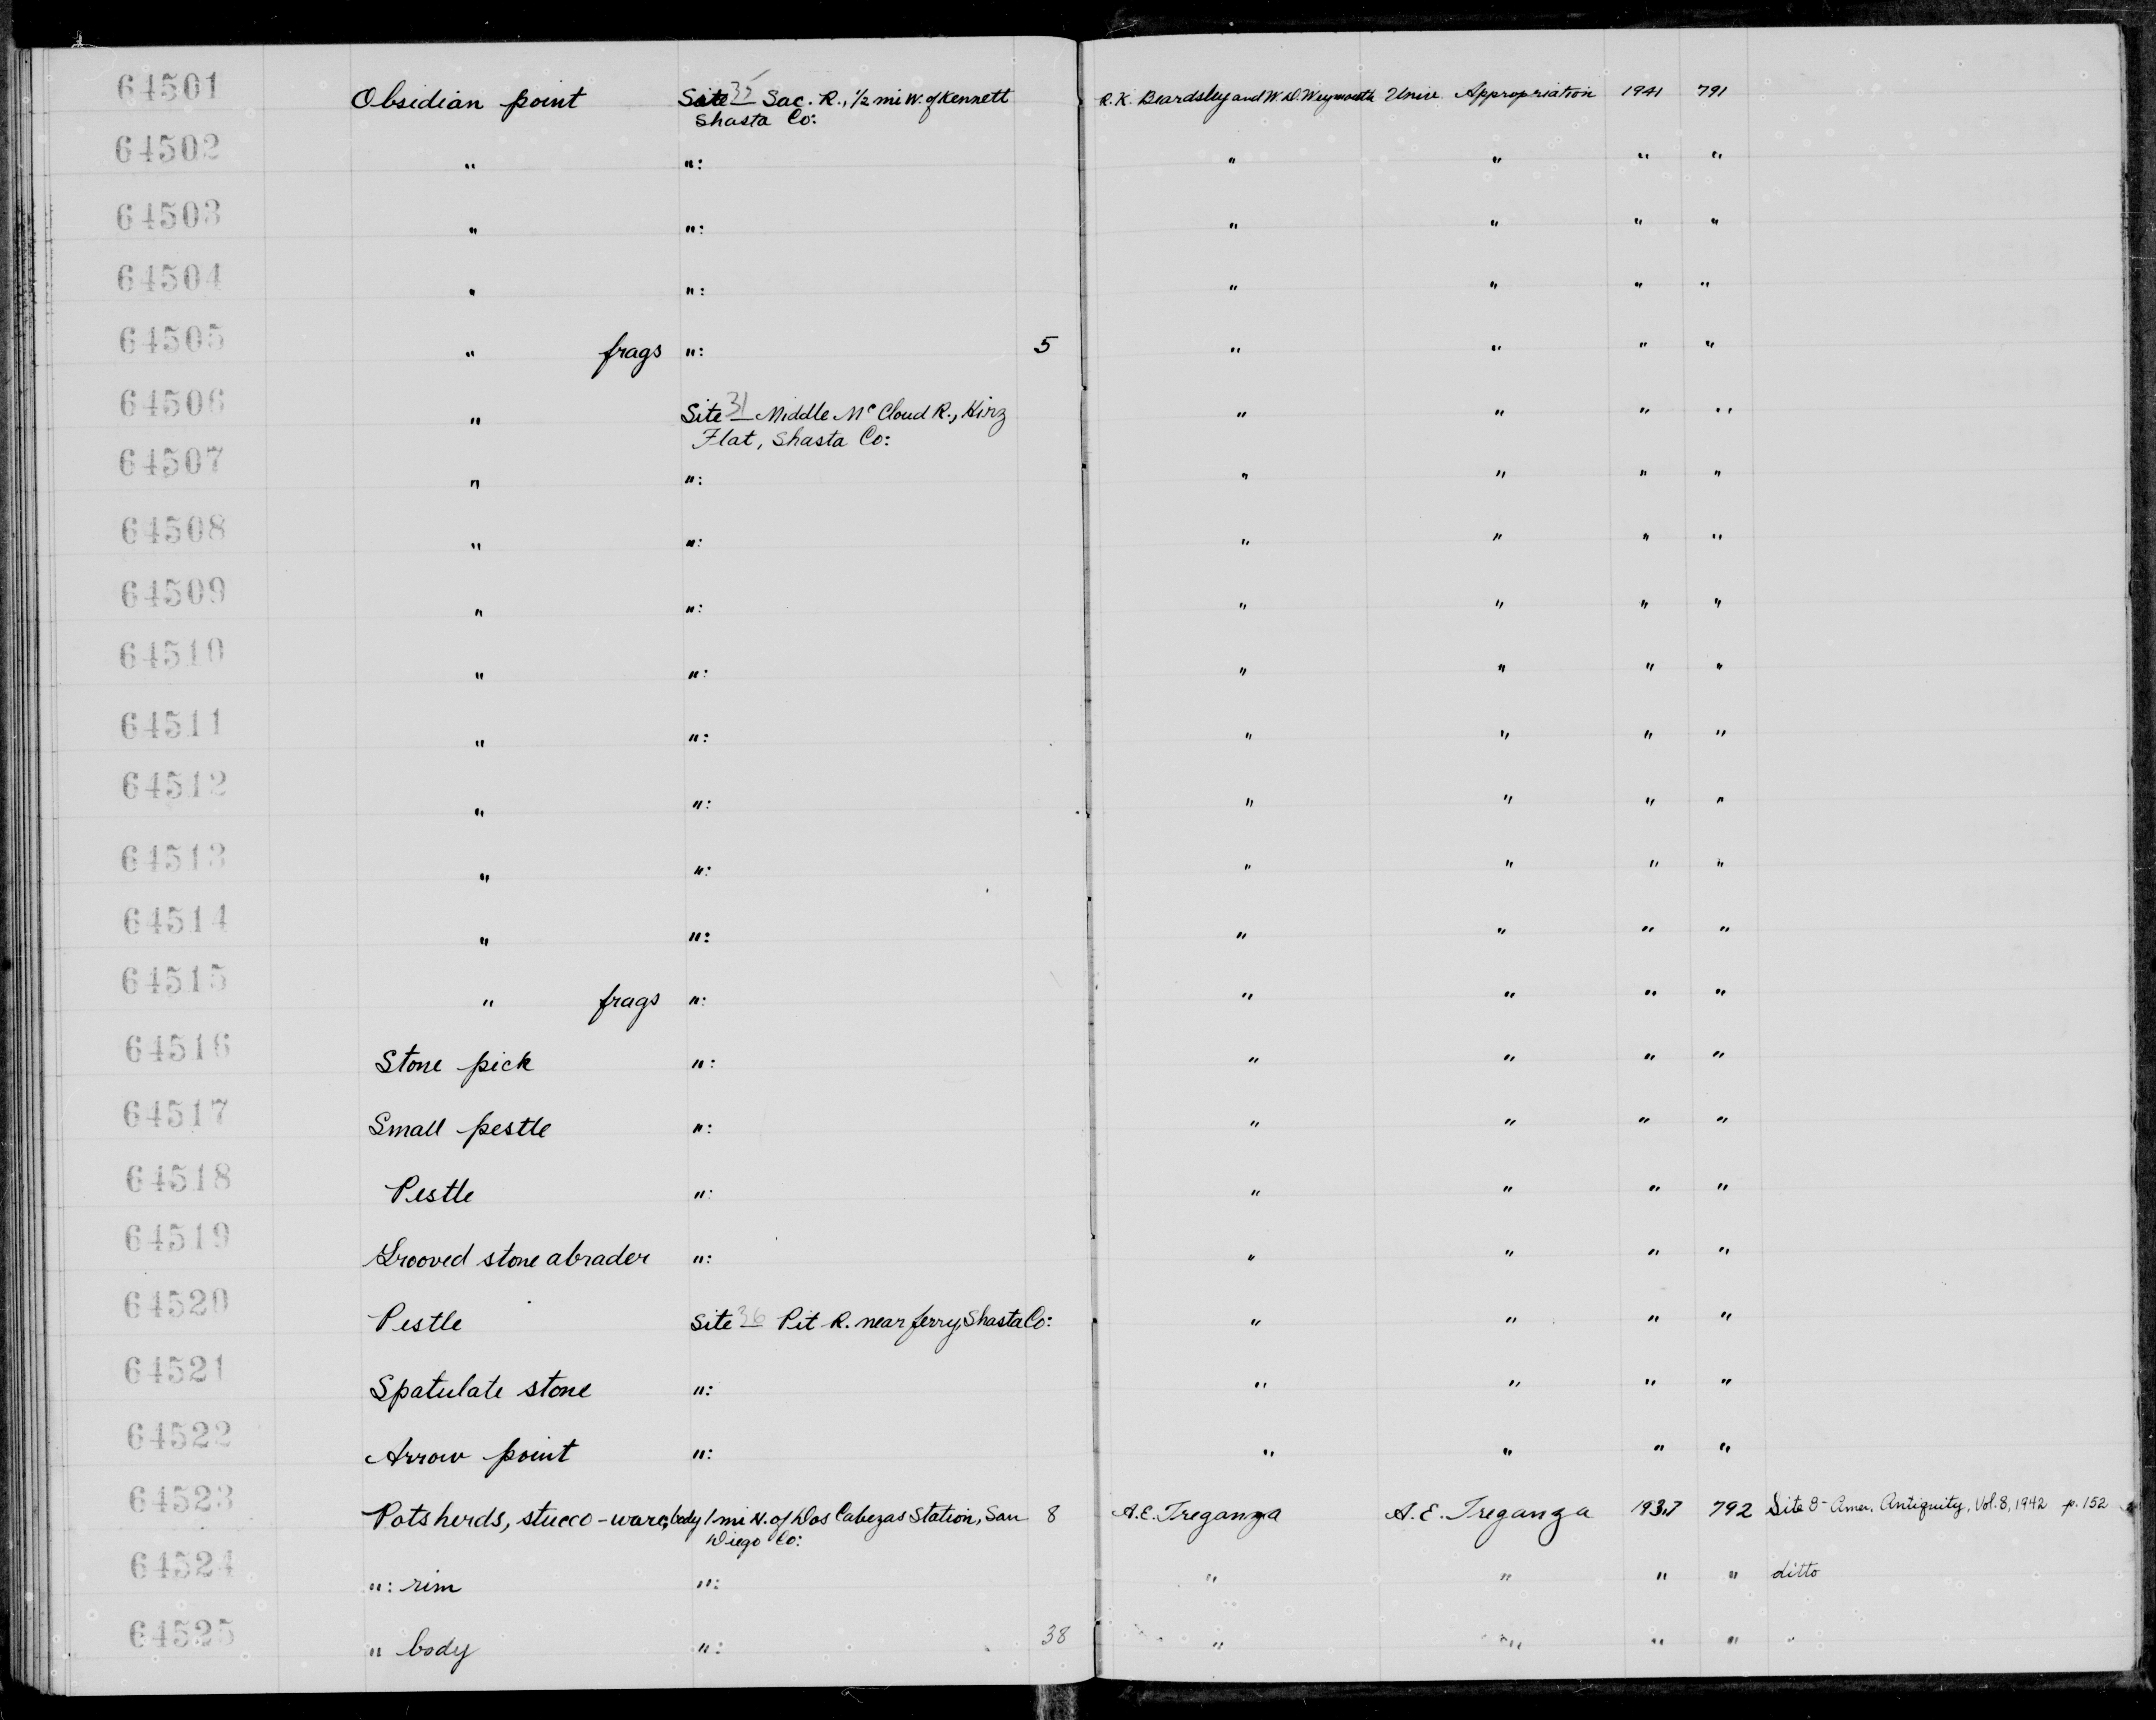 64501 Obsidian point Site 35 Sac. R., 1/2 mi W. of Kennett R.K. Beardsley and W.D. Weymouth Univ. Appropriation 1941 791
Shasta Co:
64502 " ": " " " "
64503 " ": " " " "
64504 " ": " " " "
64505 " frags ": 5 " " " "
64506 " Site 31 Middle McCloud R., Hirz " " " "
Flat, Shasta Co:
64507 " ": " " " "
64508 " ": " " " "
64509 " ": " " " "
64510 " ": " " " "
64511 " ": " " " "
64512 " ": " " " "
64513 " ": " " " "
64514 " ": " " " "
64515 " frags ": " " " "
64516 Stone pick ": " " " "
64517 Small pestle ": " " " "
64518 Pestle ": " " " "
64519 Grooved stone abrader ": " " " "
64520 Pestle Site 36 Pit R. near ferry, Shasta Co: " " " "
64521 Spatulate stone ": " " " "
64522 Arrow point ": " " " "
64523 Potsherds, stucco-ware, body 1 mi N. of Dos Cabezas Station, San 8 A.E. Treganza A.E. Treganza 1937 792 Site 8- Amer. Antiquity, Vol. 8, 1942 p. 152
Diego Co:
64524 ": rim ": " " " " ditto
64525 " body ": 38 " " " " "